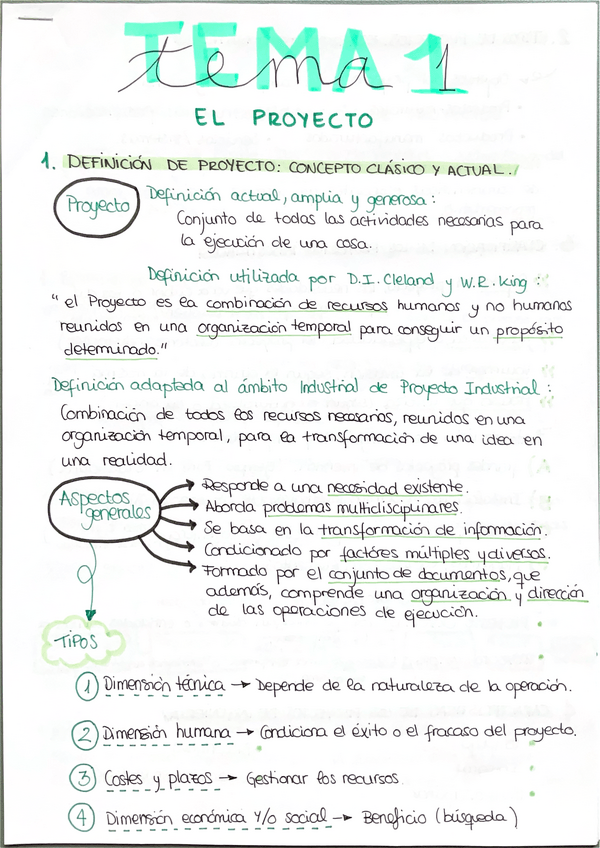 TEMA 1
tema 1
EL PROYECTO
1. DEFINICIÓN DE PROYECTO: CONCEPTO CLÁSICO Y ACTUAL.
Proyecto
Definición actual, amplia y generosa:
Conjunto de todas las actividades necesarias para
la ejecución de una cosa.
Definición utilizada por D.I. Cleland y W.R. King:
"el Proyecto es la combinación de recursos humanos y no humanos
reunidos en una organización temporal para conseguir un propósito
determinado."
Definición adaptada al ámbito Industrial de Proyecto Industrial:
Combinación de todos los recursos necesarios, reunidos en una
organización temporal, para la transformación de una idea en
una realidad.
Aspectos
generales
Responde a una necesidad existente.
Aborda problemas multidisciplinares.
Se basa en la transformación de información.
Condicionado por factóres múltiples y diversos.
Formado por el conjunto de documentos, que
además, comprende una organización y dirección
de las operaciones de ejecución.
TIPOS
1 Dimensión técnica → Depende de la naturaleza de la operación.
2 Dimensión humana → Condiciona el éxito o el fracaso del proyecto.
3 Costes y plazos → Gestionar los recursos
4 Dimensión económica y/o social → Beneficio (búsqueda)